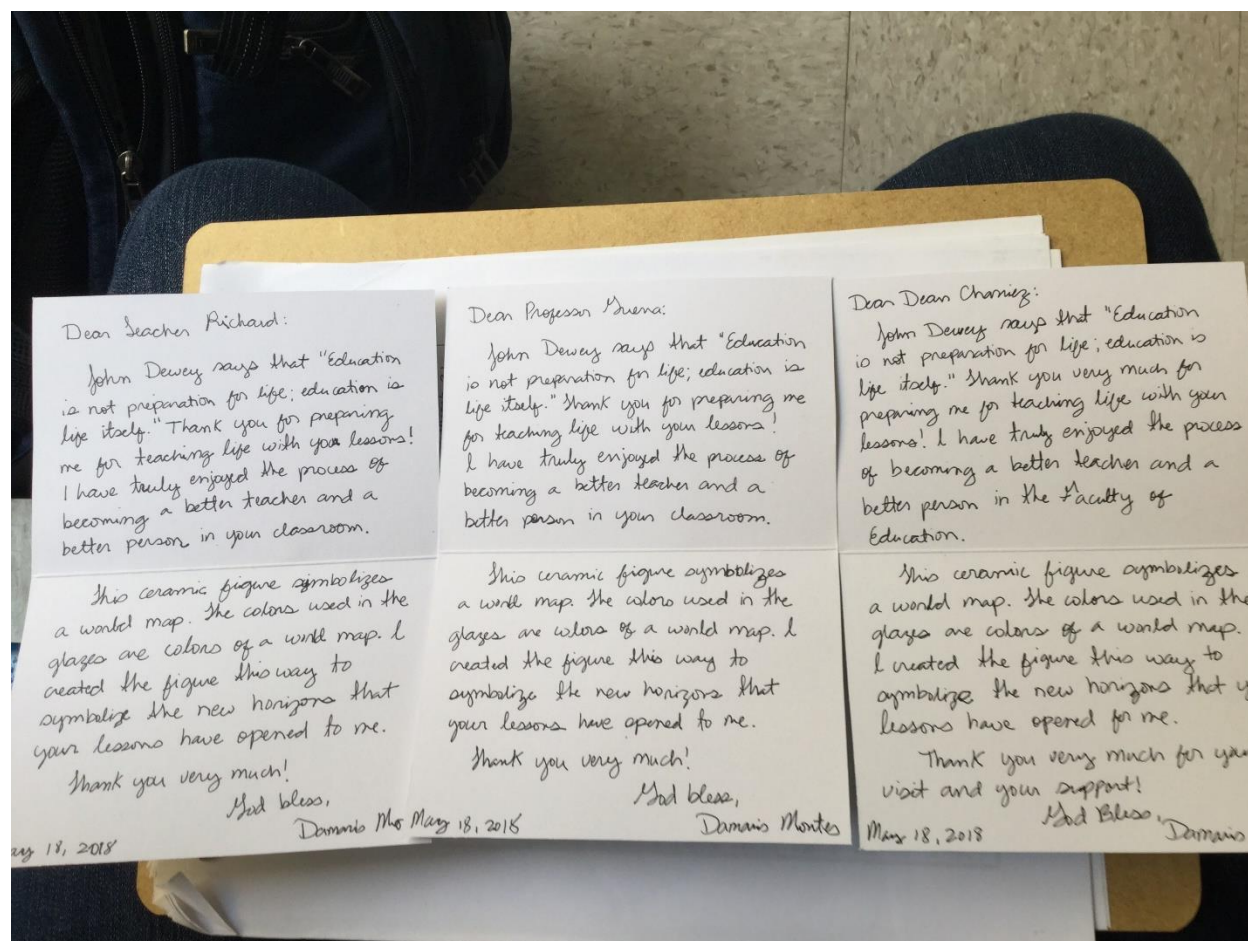 Dear Teacher Richard:
John Dewey says that "Education
is not preparation for life; education is
life itself." Thank you for preparing
me for teaching life with your lessons!
I have truly enjoyed the process of
becoming a better teacher and a
better person in your classroom.
This ceramic figure symbolizes
a world map. The colors used in the
glazes are colors of a world map. I
created the figure this way to
symbolize the new horizons that
your lessons have opened to me.
Thank you very much!
God bless,
Damaris Mo
ay 18, 2018
Dear Professor
John Dewey says that "Education
is not preparation for life; education is
life itself." Thank you for preparing me
for teaching life with your lessons!
I have truly enjoyed the process of
becoming a better teacher and a
better person in your classroom.
This ceramic figure symbolizes
a world map. The colors used in the
glazes are colors of a world map. I
created the figure this way to
symbolize the new horizons that
your lessons have opened to me.
Thank you very much!
God bless,
Damaris Montes
May 18, 2018
Dear Dean
John Dewey says that "Education
is not preparation for life; education is
life itself." Thank you very much for
preparing me for teaching life with your
lessons! I have truly enjoyed the process
of becoming a better teacher and a
better person in the Faculty of
Education.
This ceramic figure symbolizes
a world map. The colors used in the
glazes are colors of a world map.
I created the figure this way to
symbolize the new horizons that y
lessons have opened for me.
Thank you very much for your
visit and your support!
God Bless,
Damaris
May 18, 2018